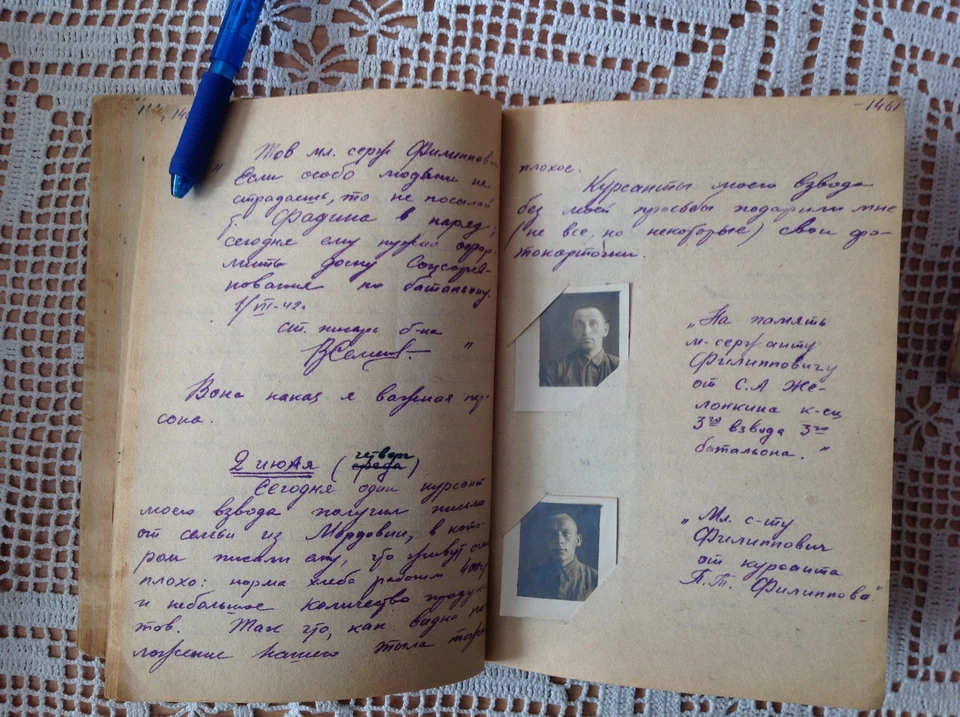 146
" Тов мл. серж Филиппович
Если особо людьми не
страдаешь, то не посылай
т. Фадина в наряд;
сегодня ему нужно офор-
мить доску Соцсорев-
нования по батальону.
1/VII-42г
ст. писарь б-на
"
Вона какая я важная пер-
сона.
2 июля (среда четверг)
Сегодня один курсант
моего взвода получил письмо
от семьи из Мордовии, в кото-
ром писали ему, что живут
плохо: норма хлеба рабочим 400гр
и небольшое количество продук-
тов. Так что, как видно по-
ложение нашего тыла тоже
-1461
плохое.
Курсанты моего взвода
без моей просьбы подарили мне
(не все, но некоторые) свои фо-
токарточки.
„На память
м-сержанту
Филипповичу
от С.А Же-
лонкина к-си
3го взвода 3го
батальона."
„Мл. с-ту
Филиппович
от курсанта
П.Т. Филиппова"